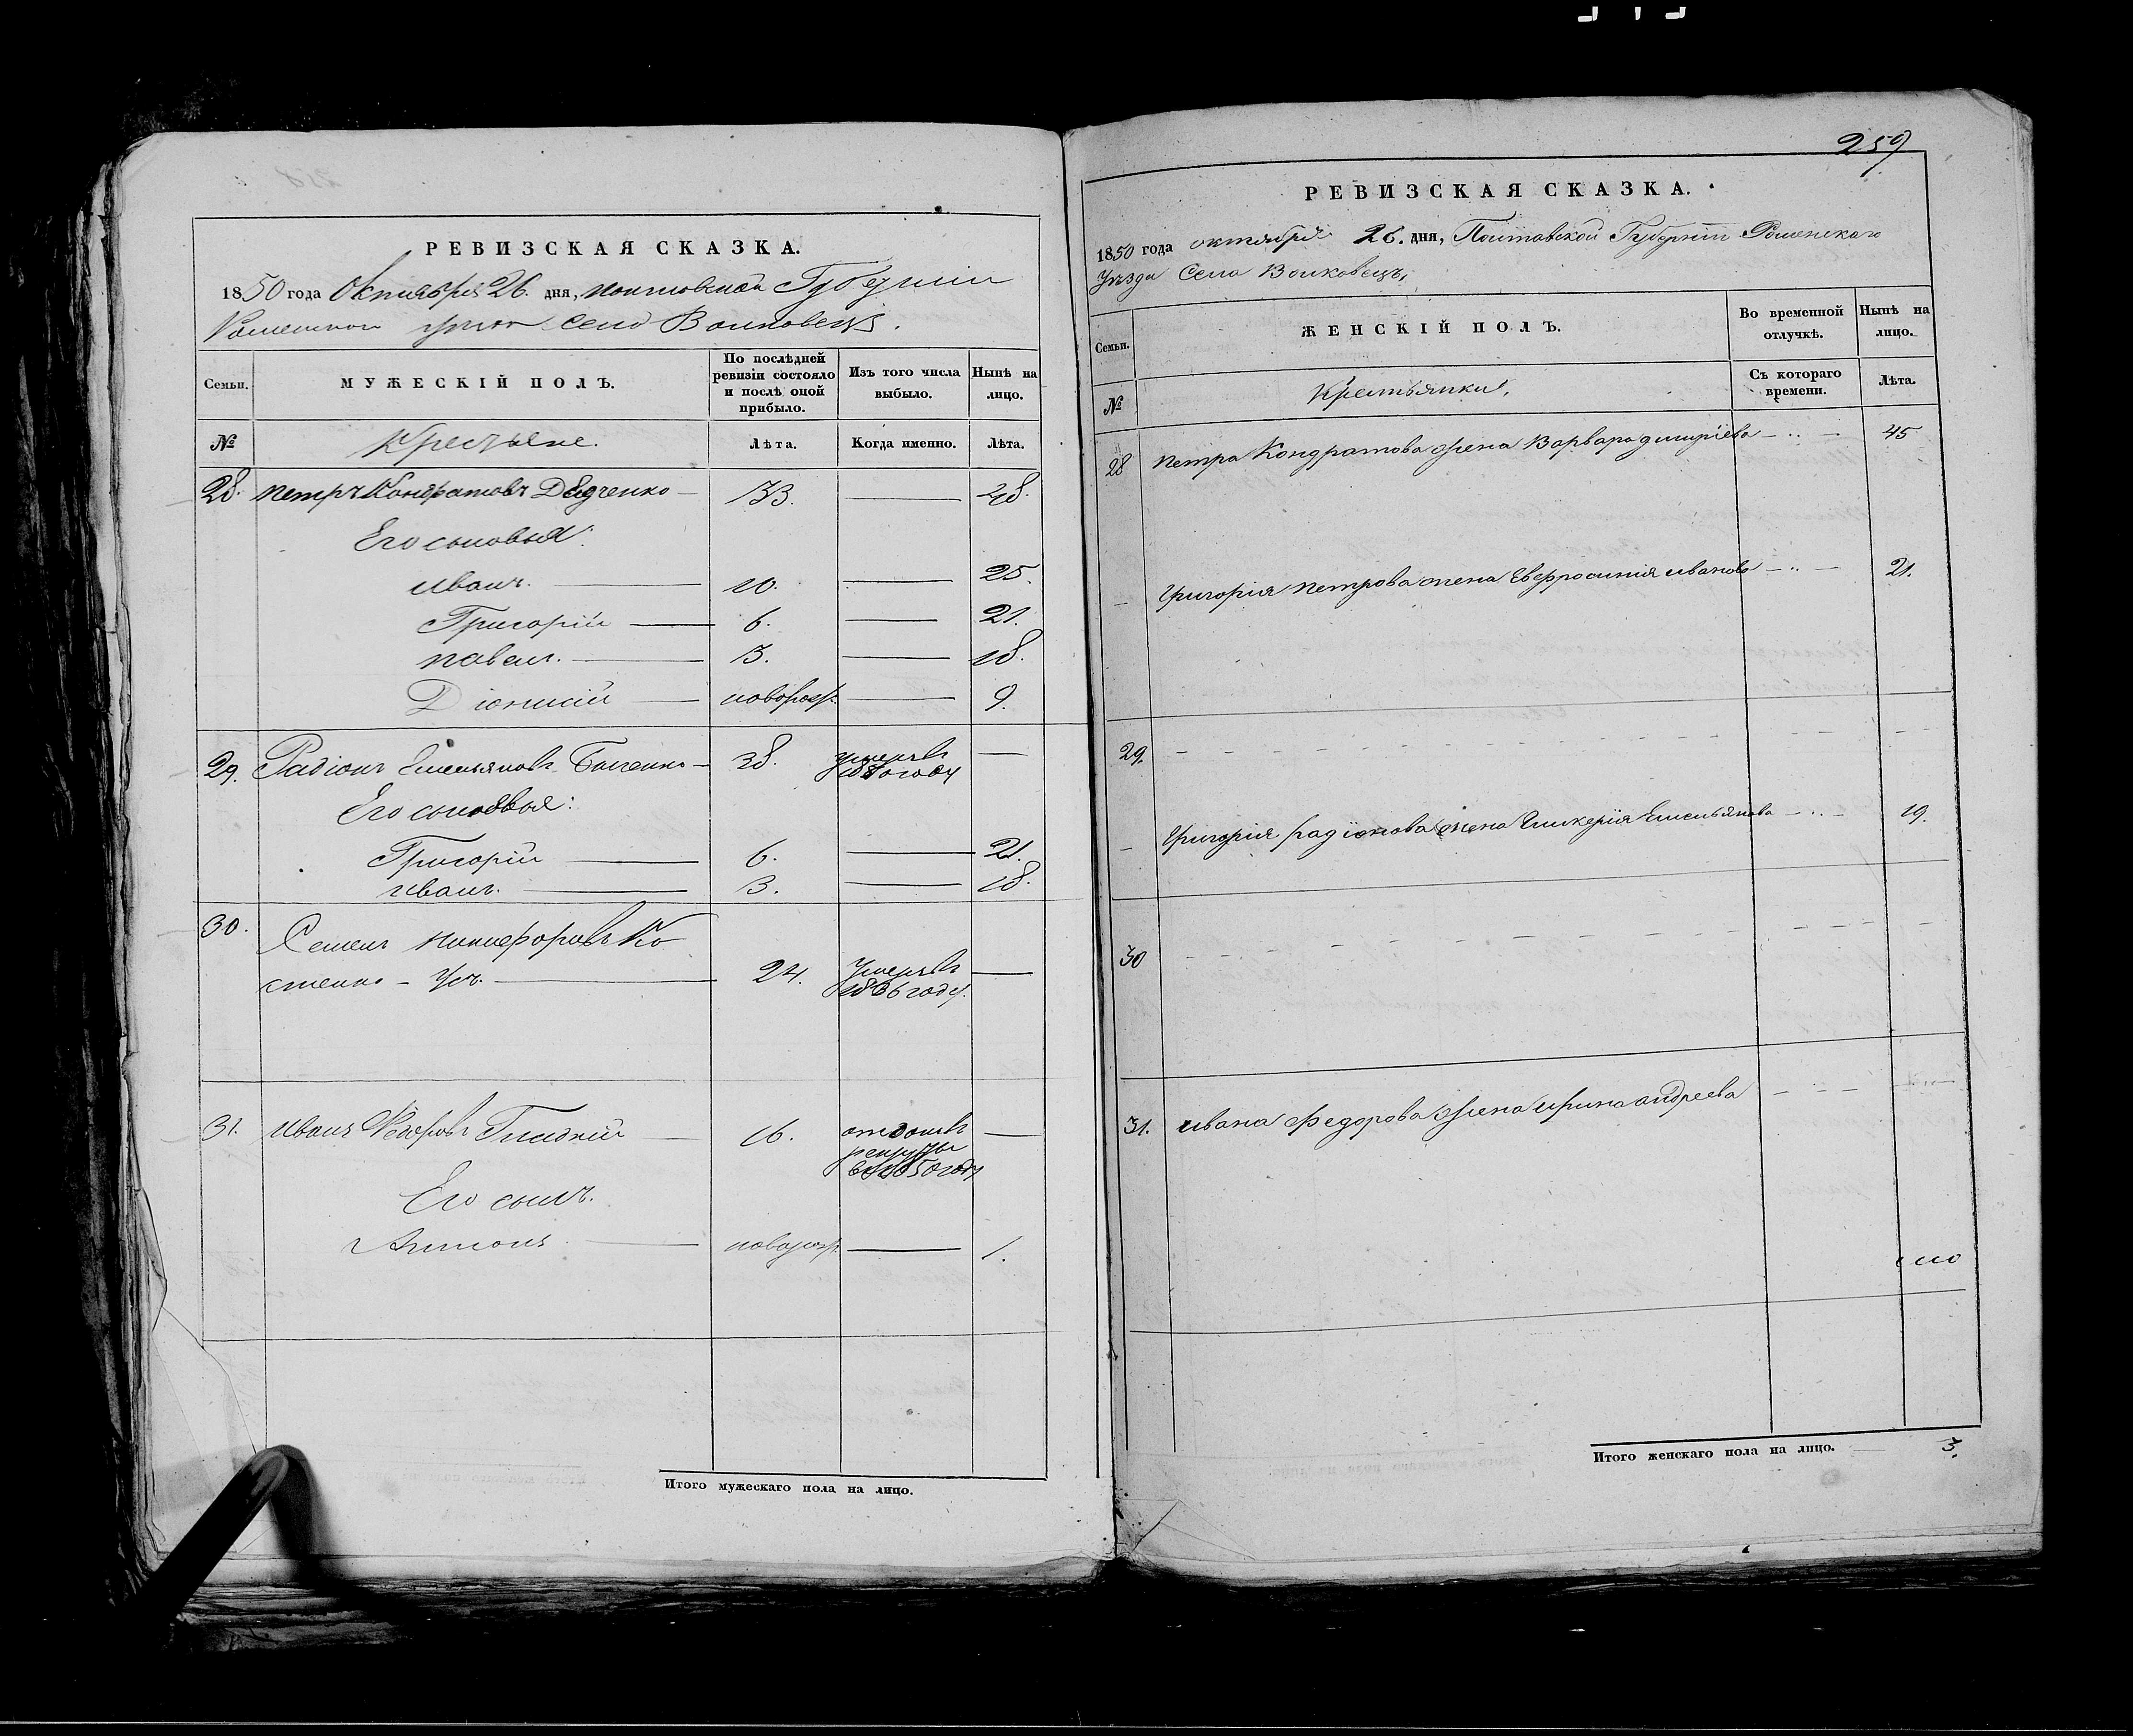 РЕВИЗСКАЯ СКАЗКА.
1850 года Октября 26. дня, Полтавской Губерніи
село Волковецъ.
Семьи. МУЖЕСКІЙ ПОЛЪ. По послѣдней ревизіи состояло и послѣ оной прибыло. Изъ того числа выбыло. Нынѣ на лицо.
№ Крестьяне. Лѣта. Когда именно. Лѣта.
28. Петръ Кондратовъ 33. 48.
Его сыновья:
Иванъ. 10. 25.
Григорій 6. 21.
Павелъ. 3. 18.
Діонисій новорож. 9.
29. Радіонъ Емельяновъ 38. умеръ въ
году
Его сыновья:
Григорій 6. 21.
Иванъ. 3. 18.
30. Семенъ Никифоровъ Ко
стенко 24. Умеръ въ
1836 году.
31. Иванъ Федоровъ Гладкій 16. отдан въ
рекруты
в 1850 году
Его сынъ.
Антонъ новорож. 1.
Итого мужескаго пола на лицо.
259
РЕВИЗСКАЯ СКАЗКА.
1850 года октября 26. дня, Полтавской Губерніи Роменскаго
Уѣзда Села Волковецъ,
Семьи. ЖЕНСКІЙ ПОЛЪ. Во временной отлучкѣ. Нынѣ на лицо.
№ Крестьянки, Съ котораго времени. Лѣта.
28 Петра Кондратова жена Варвара 45
Григорія Петрова жена Евфросинія Иванова 21.
29.
Григорія Радіонова жена Гликерія Емельянова 19.
30
31. Ивана Федорова жена Ирина Андреева
Итого женскаго пола на лицо. 3.